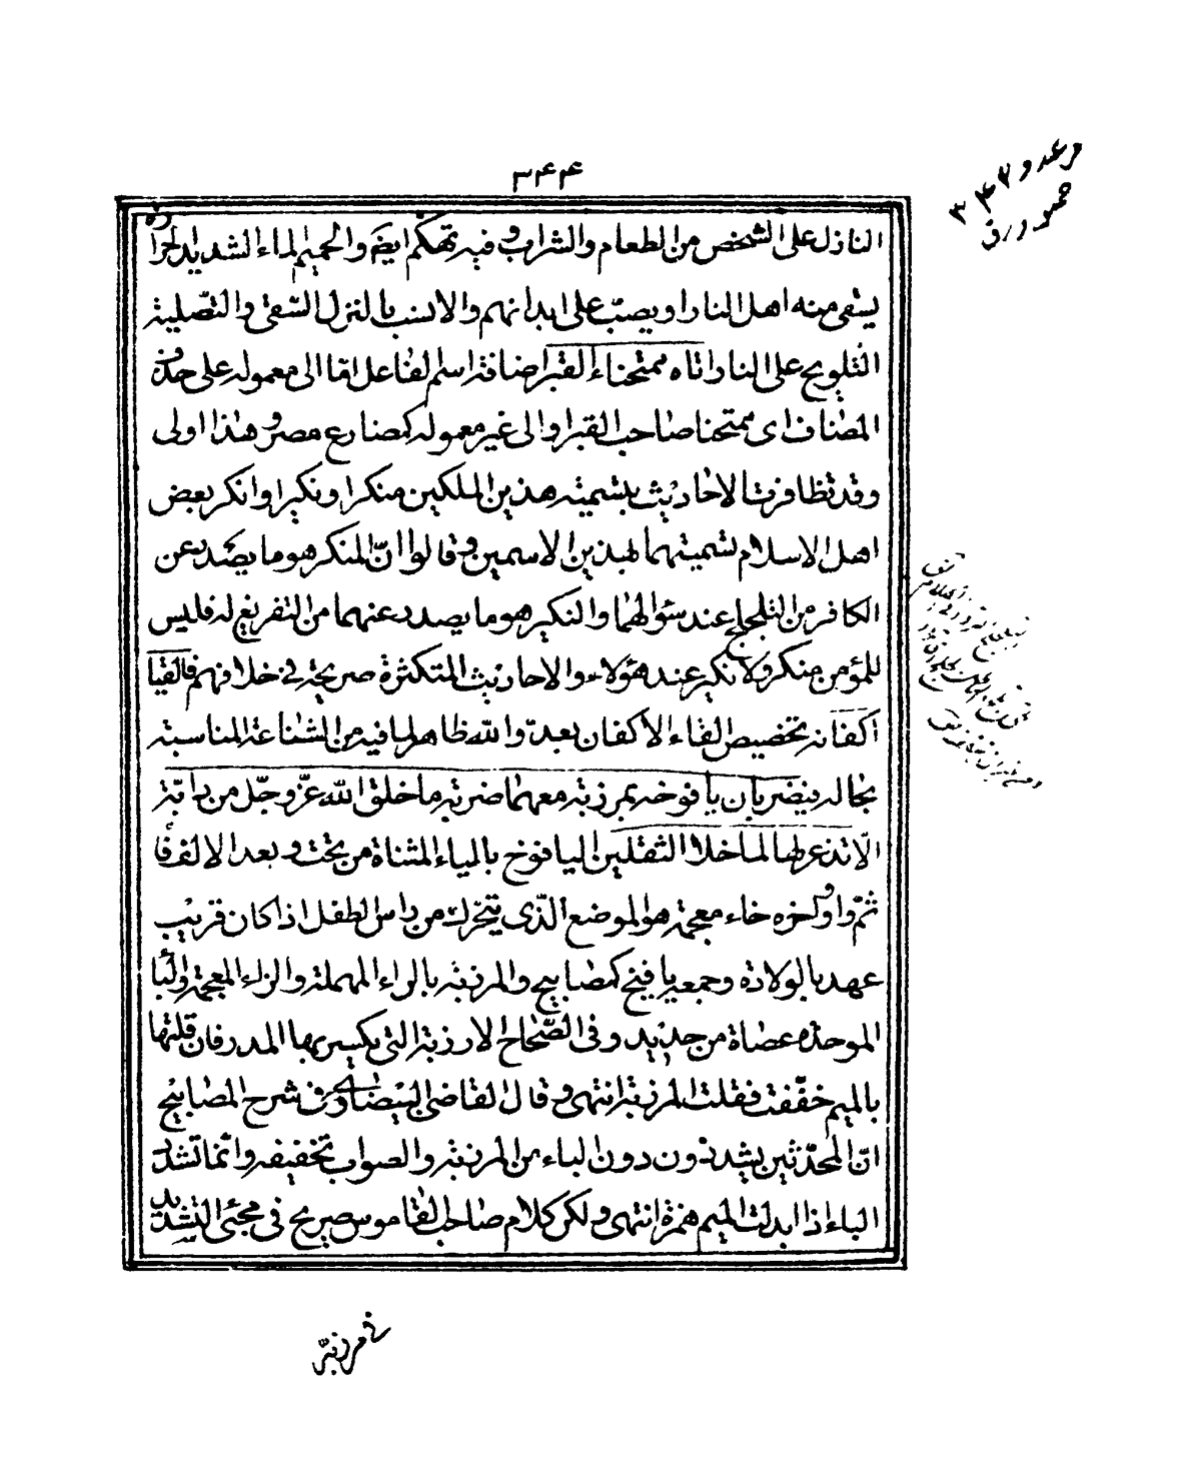 ٣٤٤
النازل على الشخص من الطعام والشراب وفيه تهكم ايضا والحميم الماء الشديد الحرارة
يسقى منه اهل النار او يصب على ابدانهم والانسب بالنزل السقى والتصلية
التلويح على النار اتاه ممتحناء القبر اضافة اسم الفاعل اما الى معموله على حذف
المضاف اى ممتحنا صاحب القبر او الى غير معموله كمصارع مصر وهذا اولى
وقد تظافرت الاحاديث بتسمية هذين الملكين منكرا ونكيرا وانكر بعض
اهل الاسلام تسميتهما بهذين الاسمين وقالوا انّ المنكر هو ما يصدر عن
الكافر من التلجلج عند سؤالهما والنكير هو ما يصدر عنهما من التفريع له فليس
للمؤمن منكر ولا نكير عند هؤلاء والاحاديث المتكثرة صريحة فى خلافهم فالقيا
اكفانه تخصيص القاء الاكفان بعدوّ الله ظاهر لما فيه من الشناعة المناسبة
بحاله فيضربان يافوخه بمرزبة معهما ضربة ما خلق الله عزّ وجلّ من دابّة
الّا تذعر لها ما خلا الثقلين اليافوخ بالياء المثناة من تحت وبعد الالف فا
ثمّ واو اخره خاء معجمة هو الموضع الذّى يتحرك من راس الطفل اذا كان قريب
عهد بالولادة وجمعه يافيخ كمصابيح والمرزبة بالراء المهملة والزاء المعجمة والبا
الموحدة عصاة من حديد وفى الصّحاح الارزبة التى يكسر بها المدر فان قلتها
بالميم خفّفت فقلت المرزبة انتهى وقال القاضى البيضاوى فى شرح المصابيح
انّ المحدّثين يشددون الباء من المرزبة والصواب تخفيفه وانما تشدد
الباء اذا ابدلت الميم همزة انتهى ولكن كلام صاحب القاموس صريح فى مجئى التشديد
فى مرزبّة